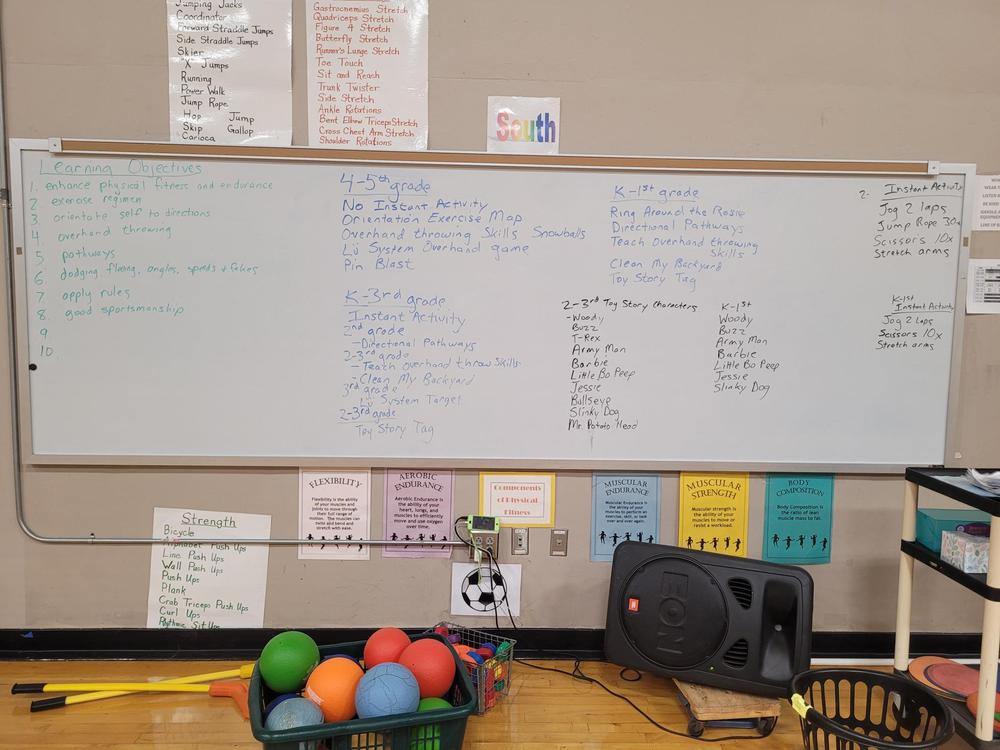 Jumping Jacks
Coordinator
Forward Straddle Jumps
Side Straddle Jumps
Skier
"X" Jumps
Running
Power Walk
Jump Rope
Hop Jump
Skip Gallop
Carioca
Gastrocnemius Stretch
Quadriceps Stretch
Figure 4 Stretch
Butterfly Stretch
Runner's Lunge Stretch
Toe Touch
Sit and Reach
Trunk Twister
Side Stretch
Ankle Rotations
Bent Elbow Triceps Stretch
Cross Chest Arm Stretch
Shoulder Rotations
South
Learning Objectives
1. enhance physical fitness and endurance
2. exercise regimen
3. orientate self to directions
4. overhand throwing
5. pathways
6. dodging, fleeing, angles, speeds + fakes
7. apply rules
8. good sportsmanship
9
10.
4-5th grade
No Instant Activity
Orientation Exercise Map
Overhand throwing Skills Snowballs
Lü System Overhand game
Pin Blast
K-3rd grade
Instant Activity
2nd grade
-Directional Pathways
2-3rd grade
-Teach overhand throw Skills
-Clean My Backyard
3rd grade
Lü System Target
2-3rd grade
Toy Story Tag
K-1st grade
Ring Around the Rosie
Directional Pathways
Teach overhand throwing
Skills
Clean My Backyard
Toy Story Tag
2-3rd Toy Story Characters
-Woody
Buzz
T-Rex
Army Man
Barbie
Little Bo Peep
Jessie
Bullseye
Slinky Dog
Mr. Potato Head
K-1st
Woody
Buzz
Army Man
Barbie
Little Bo Peep
Jessie
Slinky Dog
2- Instant Activity
Jog 2 laps
Jump Rope
Scissors 10x
Stretch arms
K-1st
Instant Activity
Jog 2 Laps
Scissors 10x
Stretch arms
FLEXIBILITY
Flexibility is the ability
of your muscles and
joints to move through
their full range of
motion. The muscles can
twist and bend and
stretch with ease.
AEROBIC
ENDURANCE
Aerobic Endurance is
the ability of your
heart, lungs, and
muscles to efficiently
move and use oxygen
over time.
Components
of Physical
Fitness
MUSCULAR
ENDURANCE
Muscular Endurance is the
ability of your muscles to
perform an exercise, skill, or task
over and over again.
MUSCULAR
STRENGTH
Muscular strength is
the ability of your
muscles to move or
resist a workload.
BODY
COMPOSITION
Body Composition is
the ratio of lean
muscle mass to fat.
Strength
Bicycle
Alphabet Push Ups
Line Push Ups
Wall Push Ups
Push Ups
Plank
Crab Triceps Push Ups
Curl Ups
Rythmic Sit Ups
JBL
EON